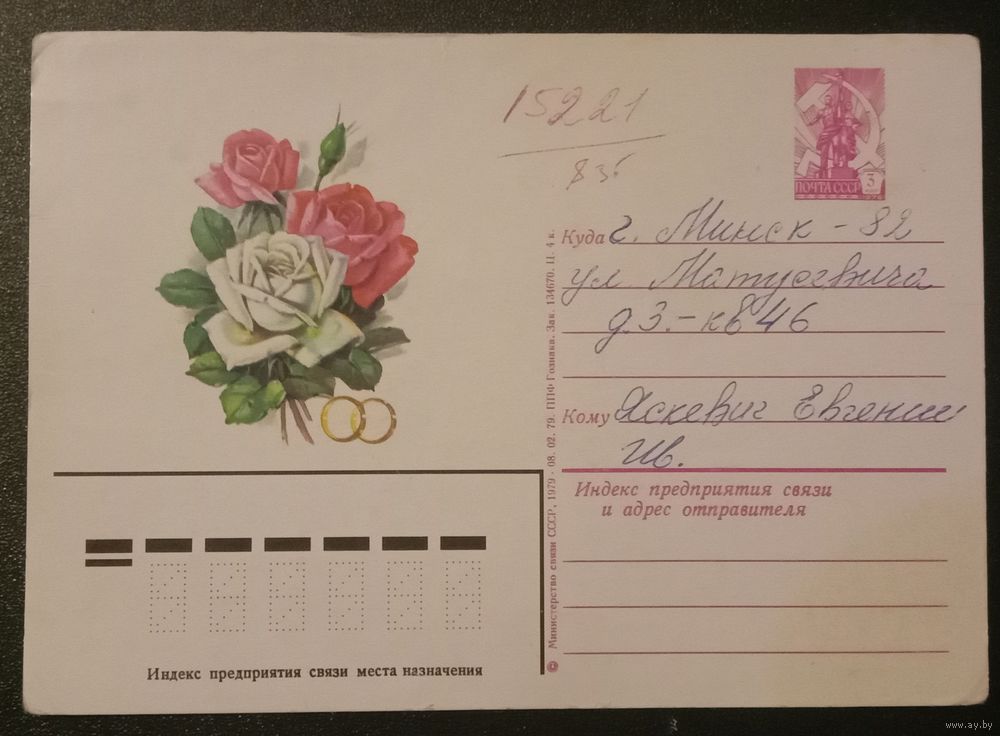 15221
835
ПОЧТА СССР 3
Куда г. Минск - 82
ул Матусевича
д. 3. - кв 46
Кому Яскевич Евгении
Ив.
Индекс предприятия связи
и адрес отправителя
Министерство связи СССР, 1979 - 08. 02. 79. ППФ Гознака. Зак. 134670. Ц. 4 к.
Индекс предприятия связи места назначения
www.ay.by